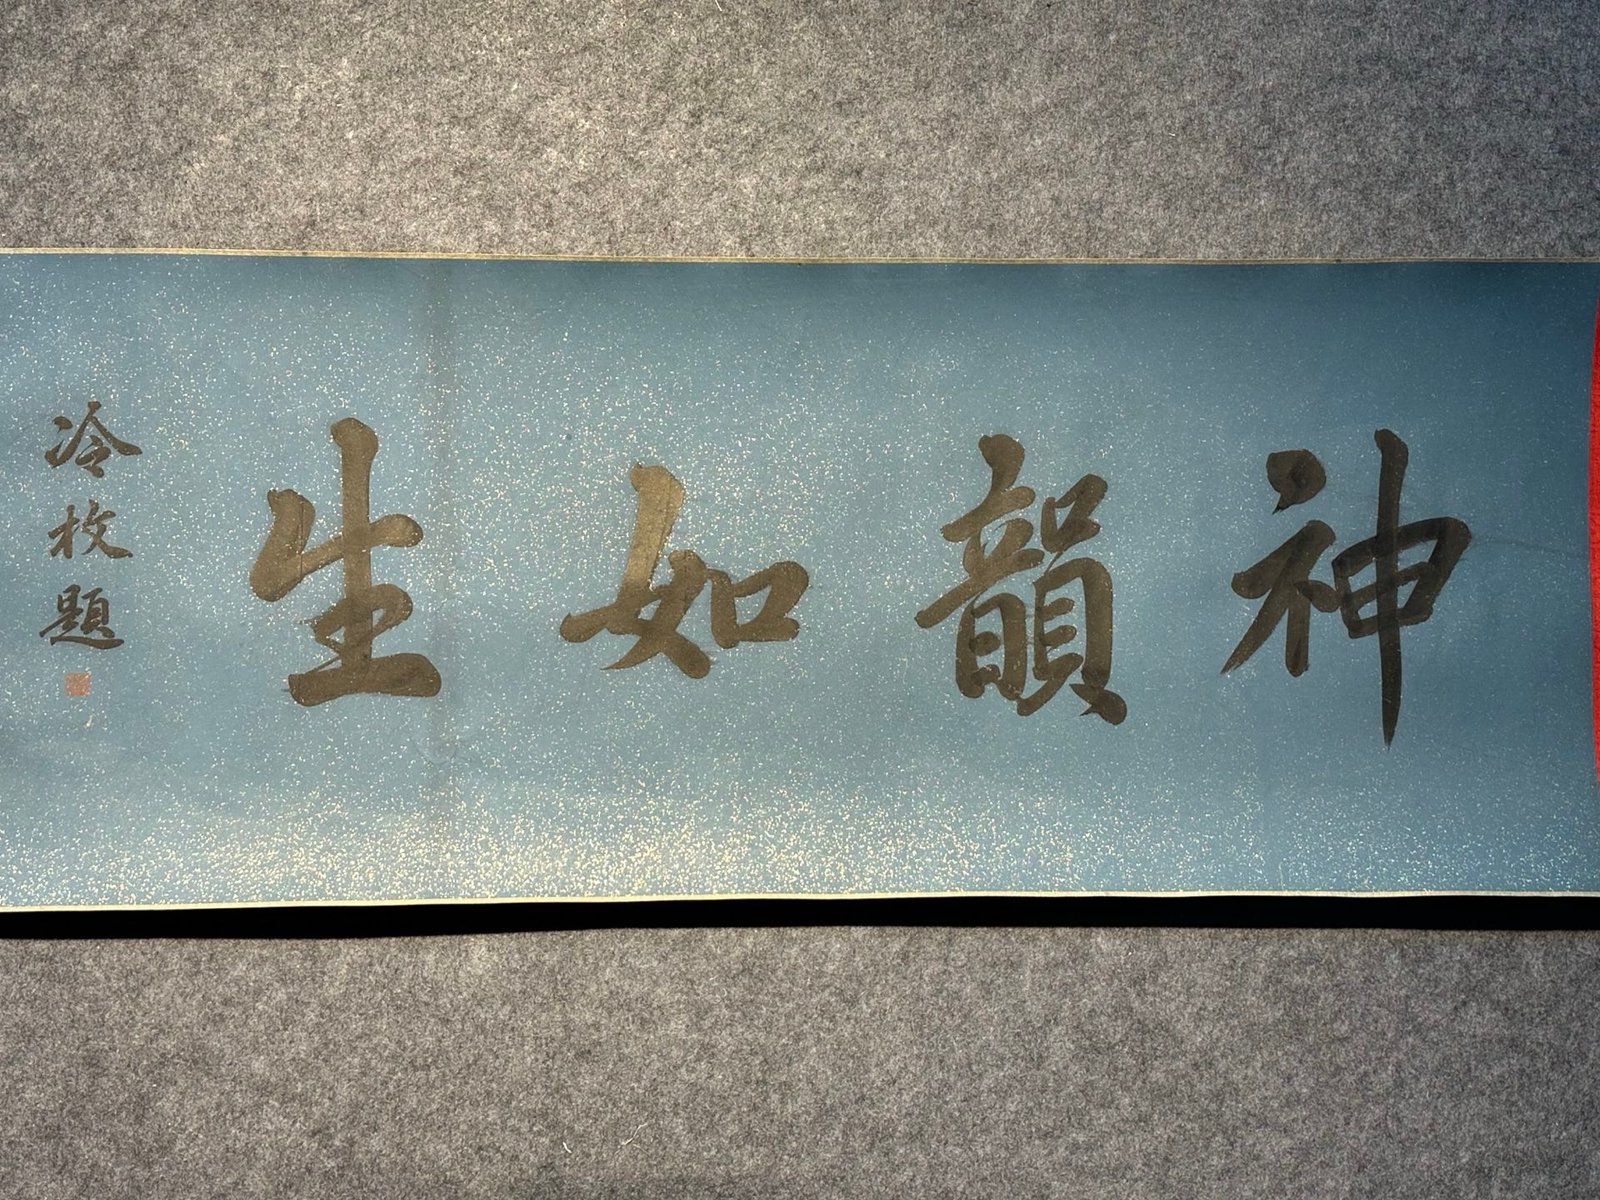 神韻如生
冷枚題